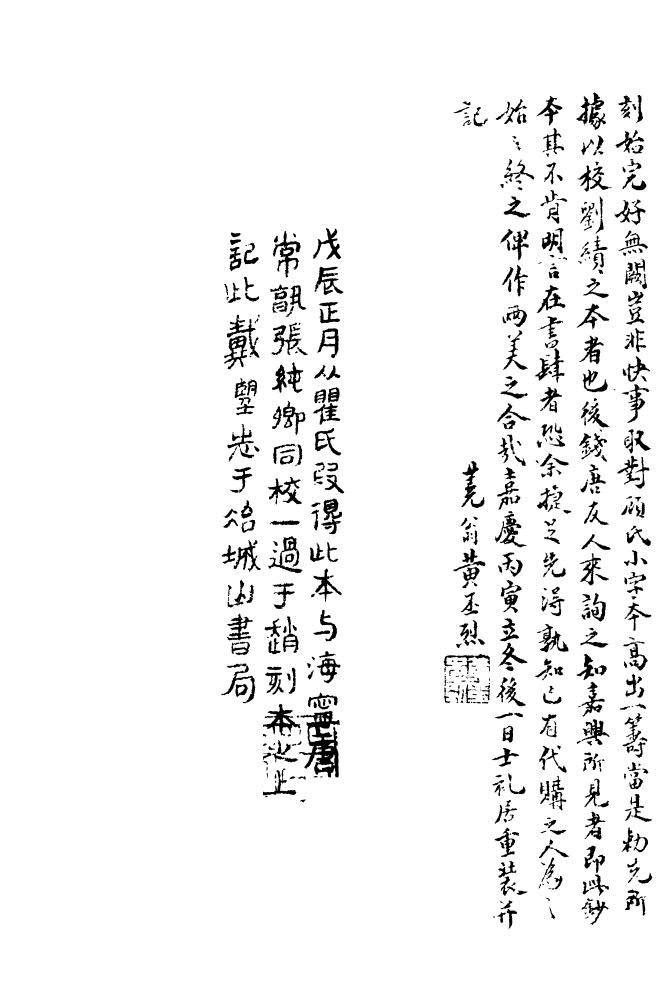 刻始完好無闕豈非快事取對顧氏小字本高出一籌當是勑先所
據以校劉績之本者也後錢唐友人來詢之知嘉興所見者即此鈔
本其不肯明言在書肆者恐余捷足先得孰知已有代購之人為之
始之終之俾作兩美之合哉嘉慶丙寅立冬後一日士礼居重裝并
記
蕘翁黃丕烈
戊辰正月从瞿氏叚得此本与海寧唐
常孰張純卿同校一過于趙刻本之上
記此戴望志于冶城山書局